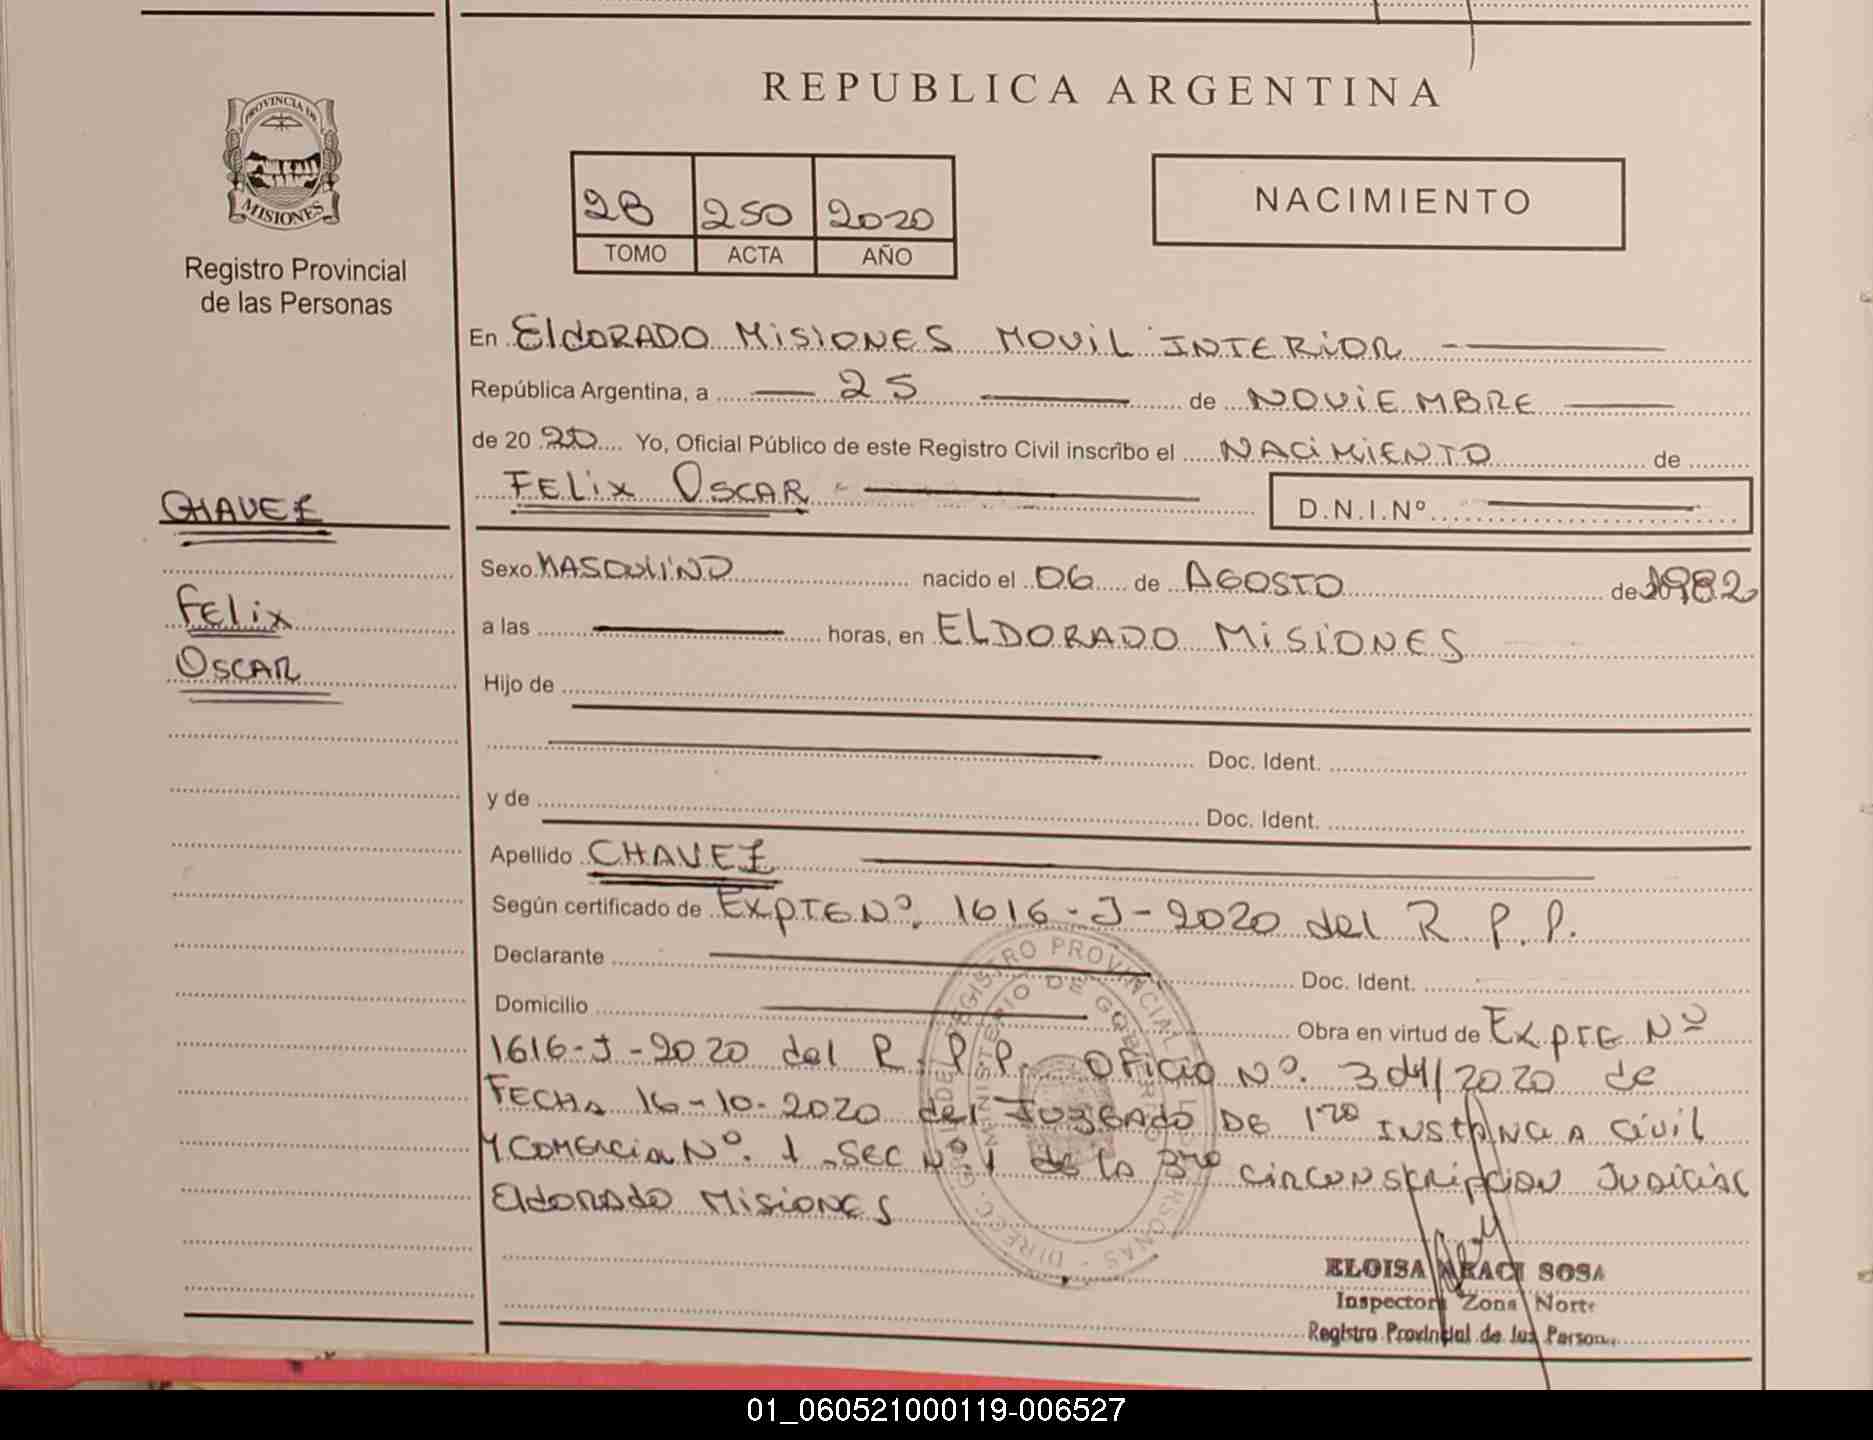 REPUBLICA ARGENTINA
PROVINCIA DE
MISIONES
Registro Provincial
de las Personas
2B 250 2020
TOMO ACTA AÑO
NACIMIENTO
En ElDORADO MiSIONES MOVIL INTERIOR
República Argentina, a 25 de NOVIEMBRE
de 20 20 Yo, Oficial Público de este Registro Civil inscribo el NACIMIENTO de
FELIX OSCAR D.N.I.Nº
CHAVEZ
FELIX
OSCAR
Sexo MASCULINO nacido el 06 de AGOSTO de 1982
a las horas, en ELDORADO MISIONES
Hijo de
Doc. Ident.
y de Doc. Ident.
Apellido CHAVEZ
Según certificado de EXPTE Nº. 1616-J-2020 del R. P.P.
Declarante Doc. Ident.
Domicilio Obra en virtud de EXPTE Nº
1616-J-2020 del R. P.P. OFICIO Nº. /2020 de
FECHA 16-10-2020 del JUZGADO DE 1ra INSTANCIA Civil
Y COMERCIAL Nº. 1 SEC Nº. 1 de la 3ra CIRCUNSCRIPCION JUDICIAL
Eldorado MISIONES
DIRECC. GRAL DEL REGISTRO PROVINCIAL DE LAS PERSONAS
MINISTERIO DE GOBIERNO
ELOISA ARACI SOSA
Inspectora Zona Norte
Registro Provincial de las Person
01_060521000119-006527